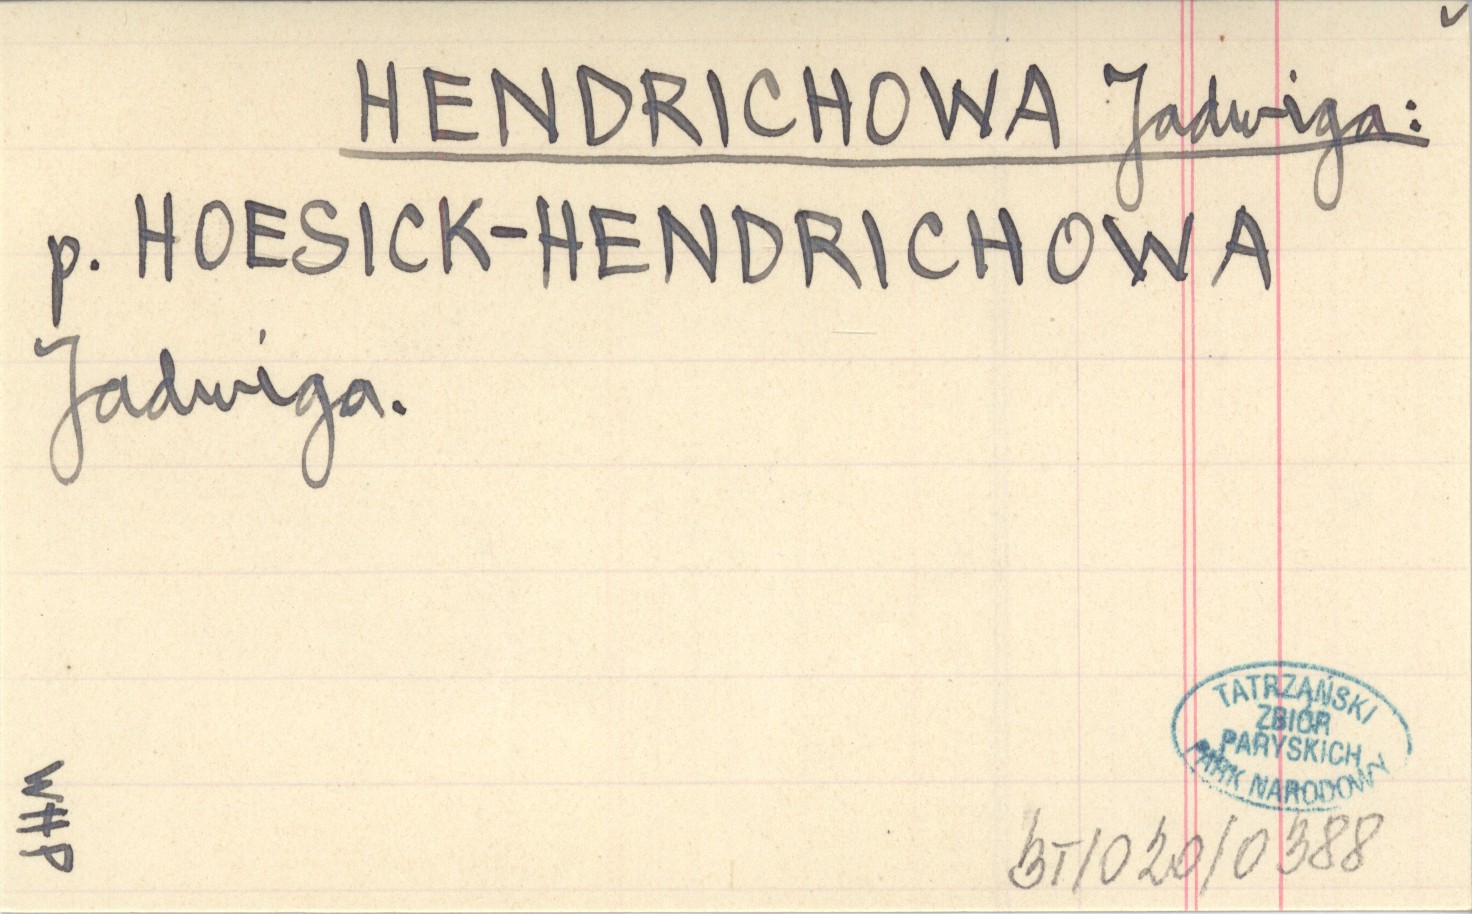 HENDRICHOWA Jadwiga:
p. HOESICK-HENDRICHOWA
Jadwiga.
TATRZAŃSKI
ZBIÓR
PARYSKICH
PARK NARODOWY
WHP
BT/020/0388